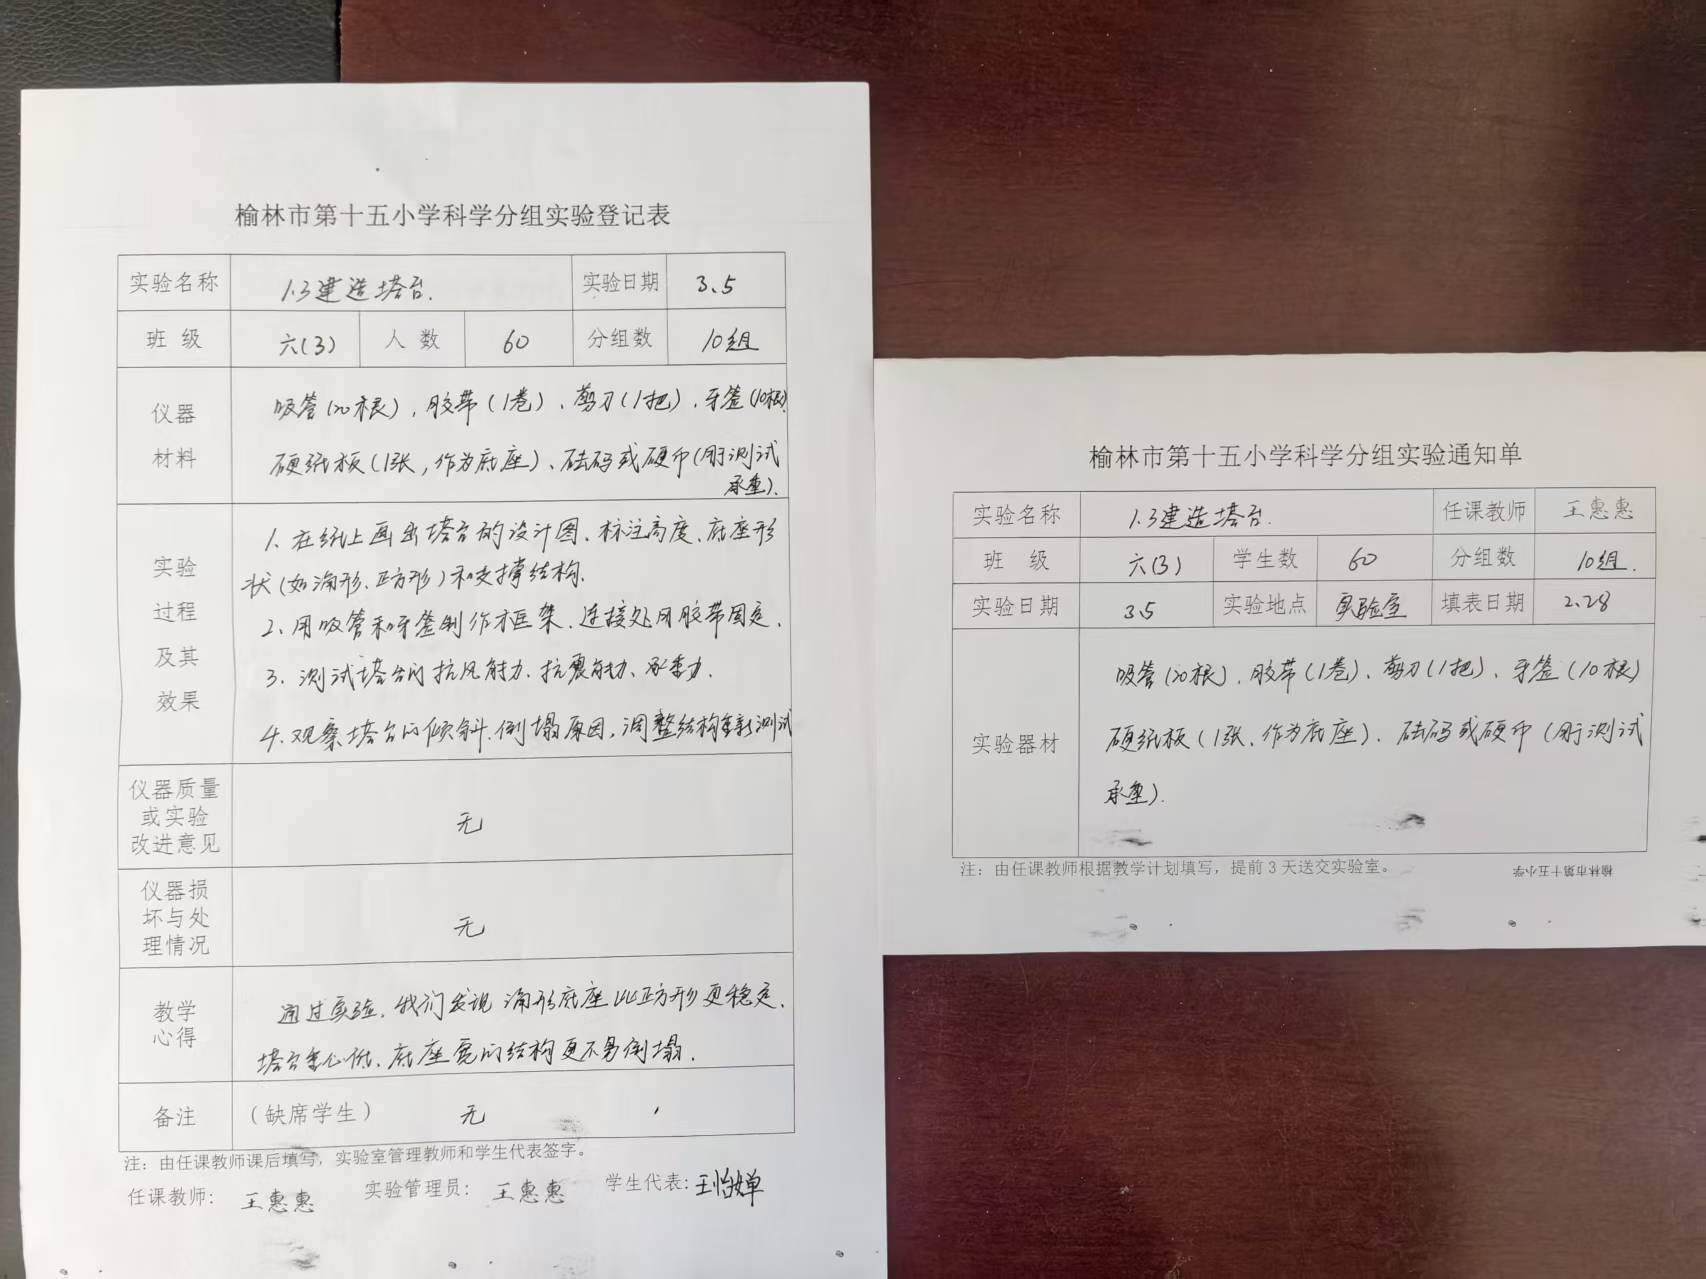 榆林市第十五小学科学分组实验登记表
实验名称 1.3建造塔台. 实验日期 3.5
班 级 六(3) 人 数 60 分组数 10组
仪器
材料
吸管(20根),胶带(1卷)、剪刀(1把)、牙签(10根)
硬纸板(1张,作为底座)、砝码或硬币(用于测试
承重).
实验
过程
及其
效果
1、在纸上画出塔台的设计图、标注高度、底座形
状(如三角形、正方形)和支撑结构.
2、用吸管和牙签制作框架、连接处用胶带固定.
3、测试塔台的抗风能力、抗震能力、承重力.
4、观察塔台的倾斜、倒塌原因,调整结构重新测试
仪器质量
或实验
改进意见
无
仪器损
坏与处
理情况
无
教学
心得
通过实验,我们发现三角形底座比正方形更稳定.
塔台重心低、底座宽的结构更不易倒塌.
备注 (缺席学生) 无
注:由任课教师课后填写,实验室管理教师和学生代表签字。
任课教师: 王惠惠 实验管理员: 王惠惠 学生代表:王怡婵
榆林市第十五小学科学分组实验通知单
实验名称 1.3建造塔台. 任课教师 王惠惠
班 级 六(3) 学生数 60 分组数 10组.
实验日期 3.5 实验地点 实验室 填表日期 2.28
实验器材
吸管(20根)、胶带(1卷)、剪刀(1把)、牙签(10根)
硬纸板(1张、作为底座)、砝码或硬币(用于测试
承重).
注:由任课教师根据教学计划填写,提前3天送交实验室。
榆林市第十五小学